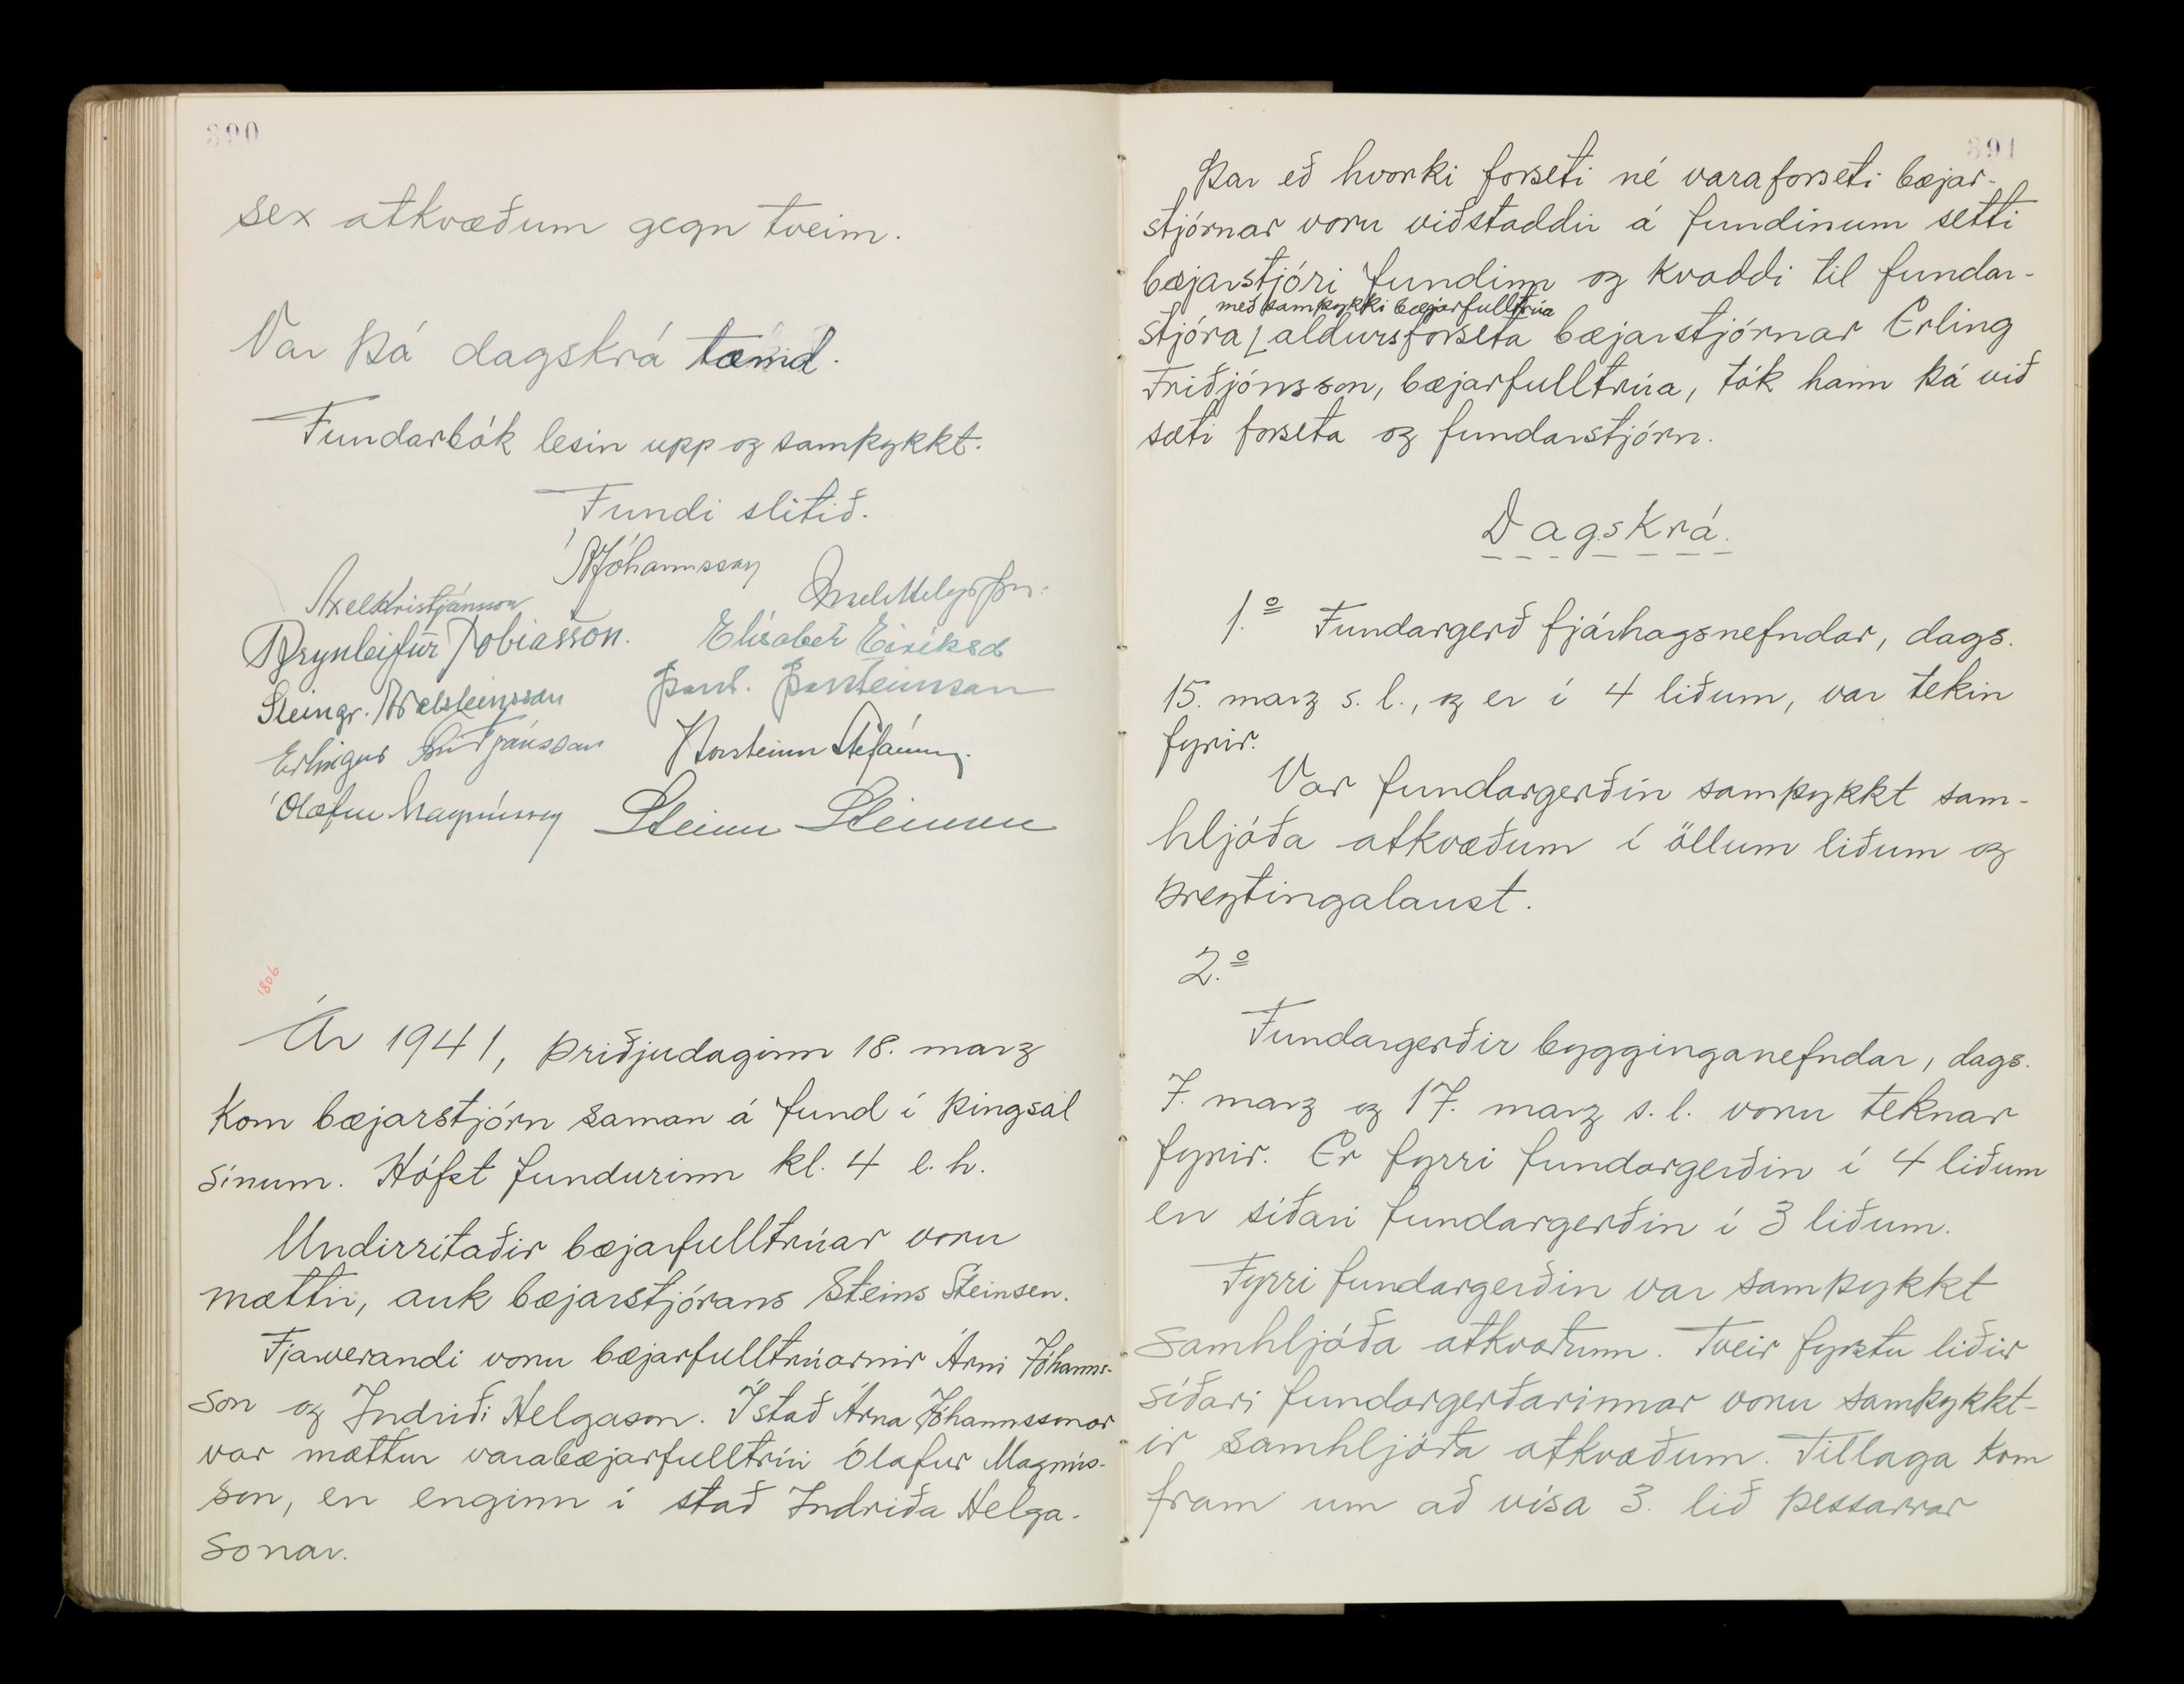 390
sex atkvæðum gegn tveim.
Var þá dagskrá tæmd.
Fundarbók lesin upp og samþykkt.
Fundi slitið.
ÁJóhannsson
Axel Kristjánsson
Brynleifur Tobiasson.
Elísabet Eiríksd
Steingr. Aðalsteinsson
Þorst. Þorsteinsson
Erlingur Friðjónsson
Þorsteinn Stefánss.
Ólafur Magnússon
Steinn Steinsen
1806
Ár 1941, þriðjudaginn 18. marz
kom bæjarstjórn saman á fund í þingsal
sínum. Hófst fundurinn kl. 4 e.h.
Undirritaðir bæjarfulltrúar voru
mættir, auk bæjarstjórans Steins Steinsen.
Fjarverandi voru bæjarfulltrúarnir Árni Jóhanns-
son og Indriði Helgason. Í stað Árna Jóhannssonar
var mættur varabæjarfulltrúi Ólafur Magnús-
son, en enginn í stað Indriða Helga-
sonar.
391
Þar eð hvorki forseti né varaforseti bæjar-
stjórnar voru viðstaddir á fundinum setti
bæjarstjóri fundinn og kvaddi til fundar-
með samþykki bæjarfulltrúa
stjóra aldursforseta bæjarstjórnar Erling
Friðjónsson, bæjarfulltrúa, tók hann þá við
sæti forseta og fundarstjórn.
Dagskrá.
1.º Fundargerð fjárhagsnefndar, dags.
15. marz s.l., og er í 4 liðum, var tekin
fyrir.
Var fundargerðin samþykkt sam-
hljóða atkvæðum í öllum liðum og
breytingalaust.
2.º
Fundargerðir bygginganefndar, dags.
7. marz og 17. marz s.l. voru teknar
fyrir. Er fyrri fundargerðin í 4 liðum
en síðari fundargerðin í 3 liðum.
Fyrri fundargerðin var samþykkt
samhljóða atkvæðum. Tveir fyrstu liðir
síðari fundargerðarinnar voru samþykkt-
ir samhljóða atkvæðum. Tillaga kom
fram um að vísa 3. lið þessarrar